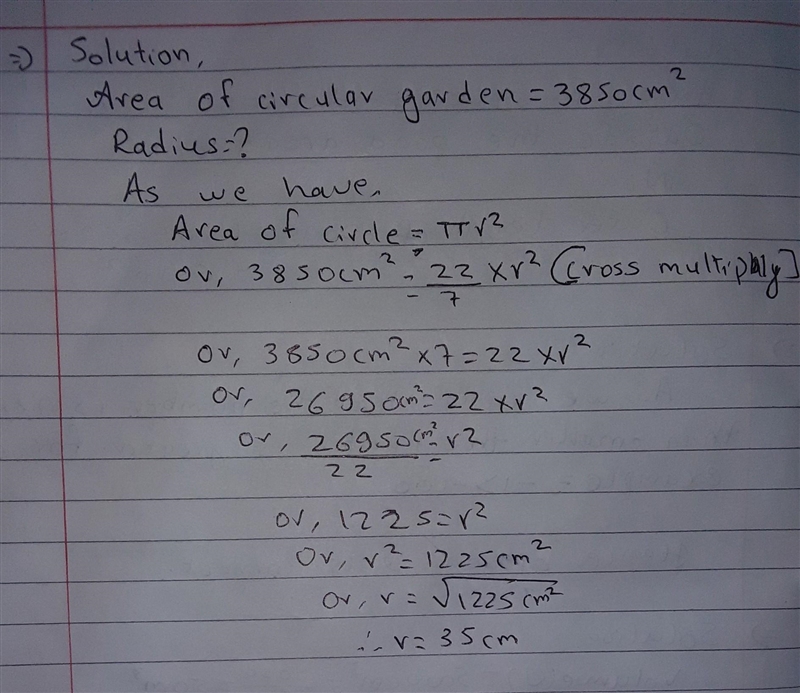 => Solution,
Area of circular garden = 3850cm²
Radius=?
As we have,
Area of circle = πr²
or, 3850cm² = 22/7 xr² (Cross multiply]
or, 3850cm² x7 = 22 xr²
or, 26950cm² = 22 xr²
or, 26950cm²/22 = r²
or, 1225=r²
or, r² = 1225cm²
or, r = √1225cm²
∴ r = 35cm